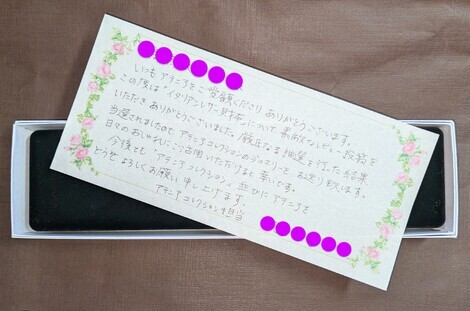 いつもアテニアをご愛顧くださり ありがとうございます。
この度は"イタリアンレザー財布"について、素敵なレビュー投稿を
いただき ありがとうございました! 厳正なる抽選を行った結果
当選されましたので、アテニアコレクションのジュエリーを お送り致します。
日々のおしゃれにご活用いただけますと幸いです。
今後とも、アテニアコレクション、並びに アテニアを
どうぞ よろしくお願い申し上げます。
アテニア コレクション 担当